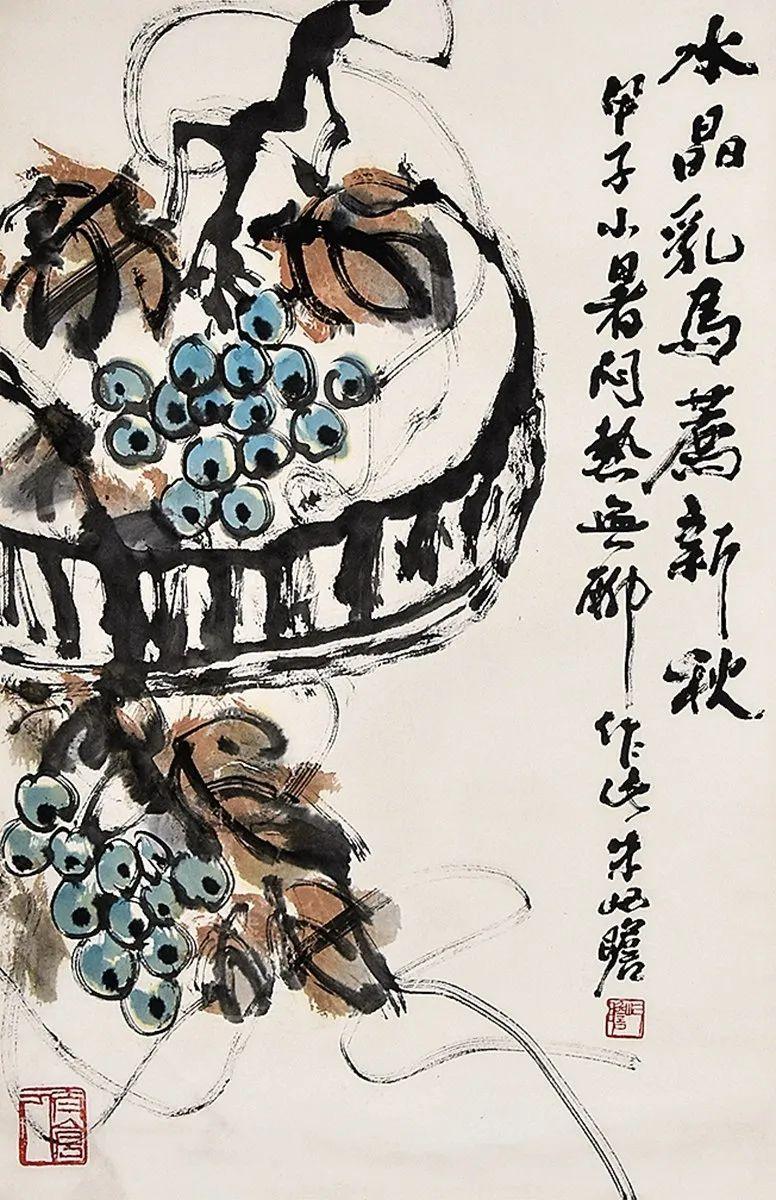 水晶乳马荐新秋
甲子小暑闷热无聊作此朱屺瞻